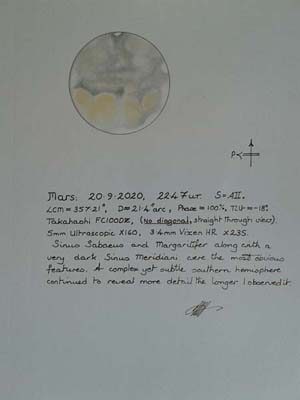 P
Mars: 20.9.2020, 2247UT. S=AII.
LCM = 357.21°, D=21.4"arc, Phase = 100%, Tilt=-18°
Takahashi FC100DZ, (No diagonal, straight through view).
5mm Ultrascopic X160, 3.4mm Vixen HR X235.
Sinus Sabaeus and Margaritifer along with a
very dark Sinus Meridiani were the most obvious
features. A complex yet subtle southern hemisphere
continued to reveal more detail the longer I observed it.